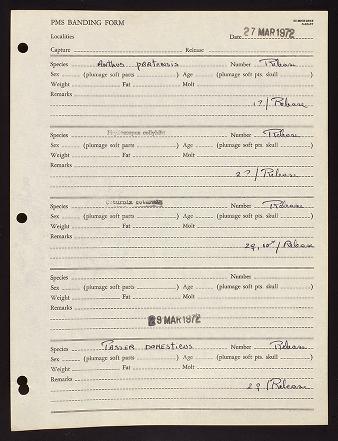 PMS BANDING FORM
Localities
Date 27 MAR 1972
Capture Release
Species Anthus pratensis Number Release
Sex (plumage soft parts ) Age (plumage soft pts. skull )
Weight Fat Molt
Remarks
1? / Release
Species Phylloscopus collybita Number Release
Sex (plumage soft parts ) Age (plumage soft pts. skull )
Weight Fat Molt
Remarks
2? / Release
Species Coturnix coturnix Number Release
Sex (plumage soft parts ) Age (plumage soft pts. skull )
Weight Fat Molt
Remarks
/ Release
Species Number
Sex (plumage soft parts ) Age (plumage soft pts. skull )
Weight Fat Molt
Remarks
29 MAR 1972
Species Passer domesticus Number Release
Sex (plumage soft parts ) Age (plumage soft pts. skull )
Weight Fat Molt
Remarks
/ Release